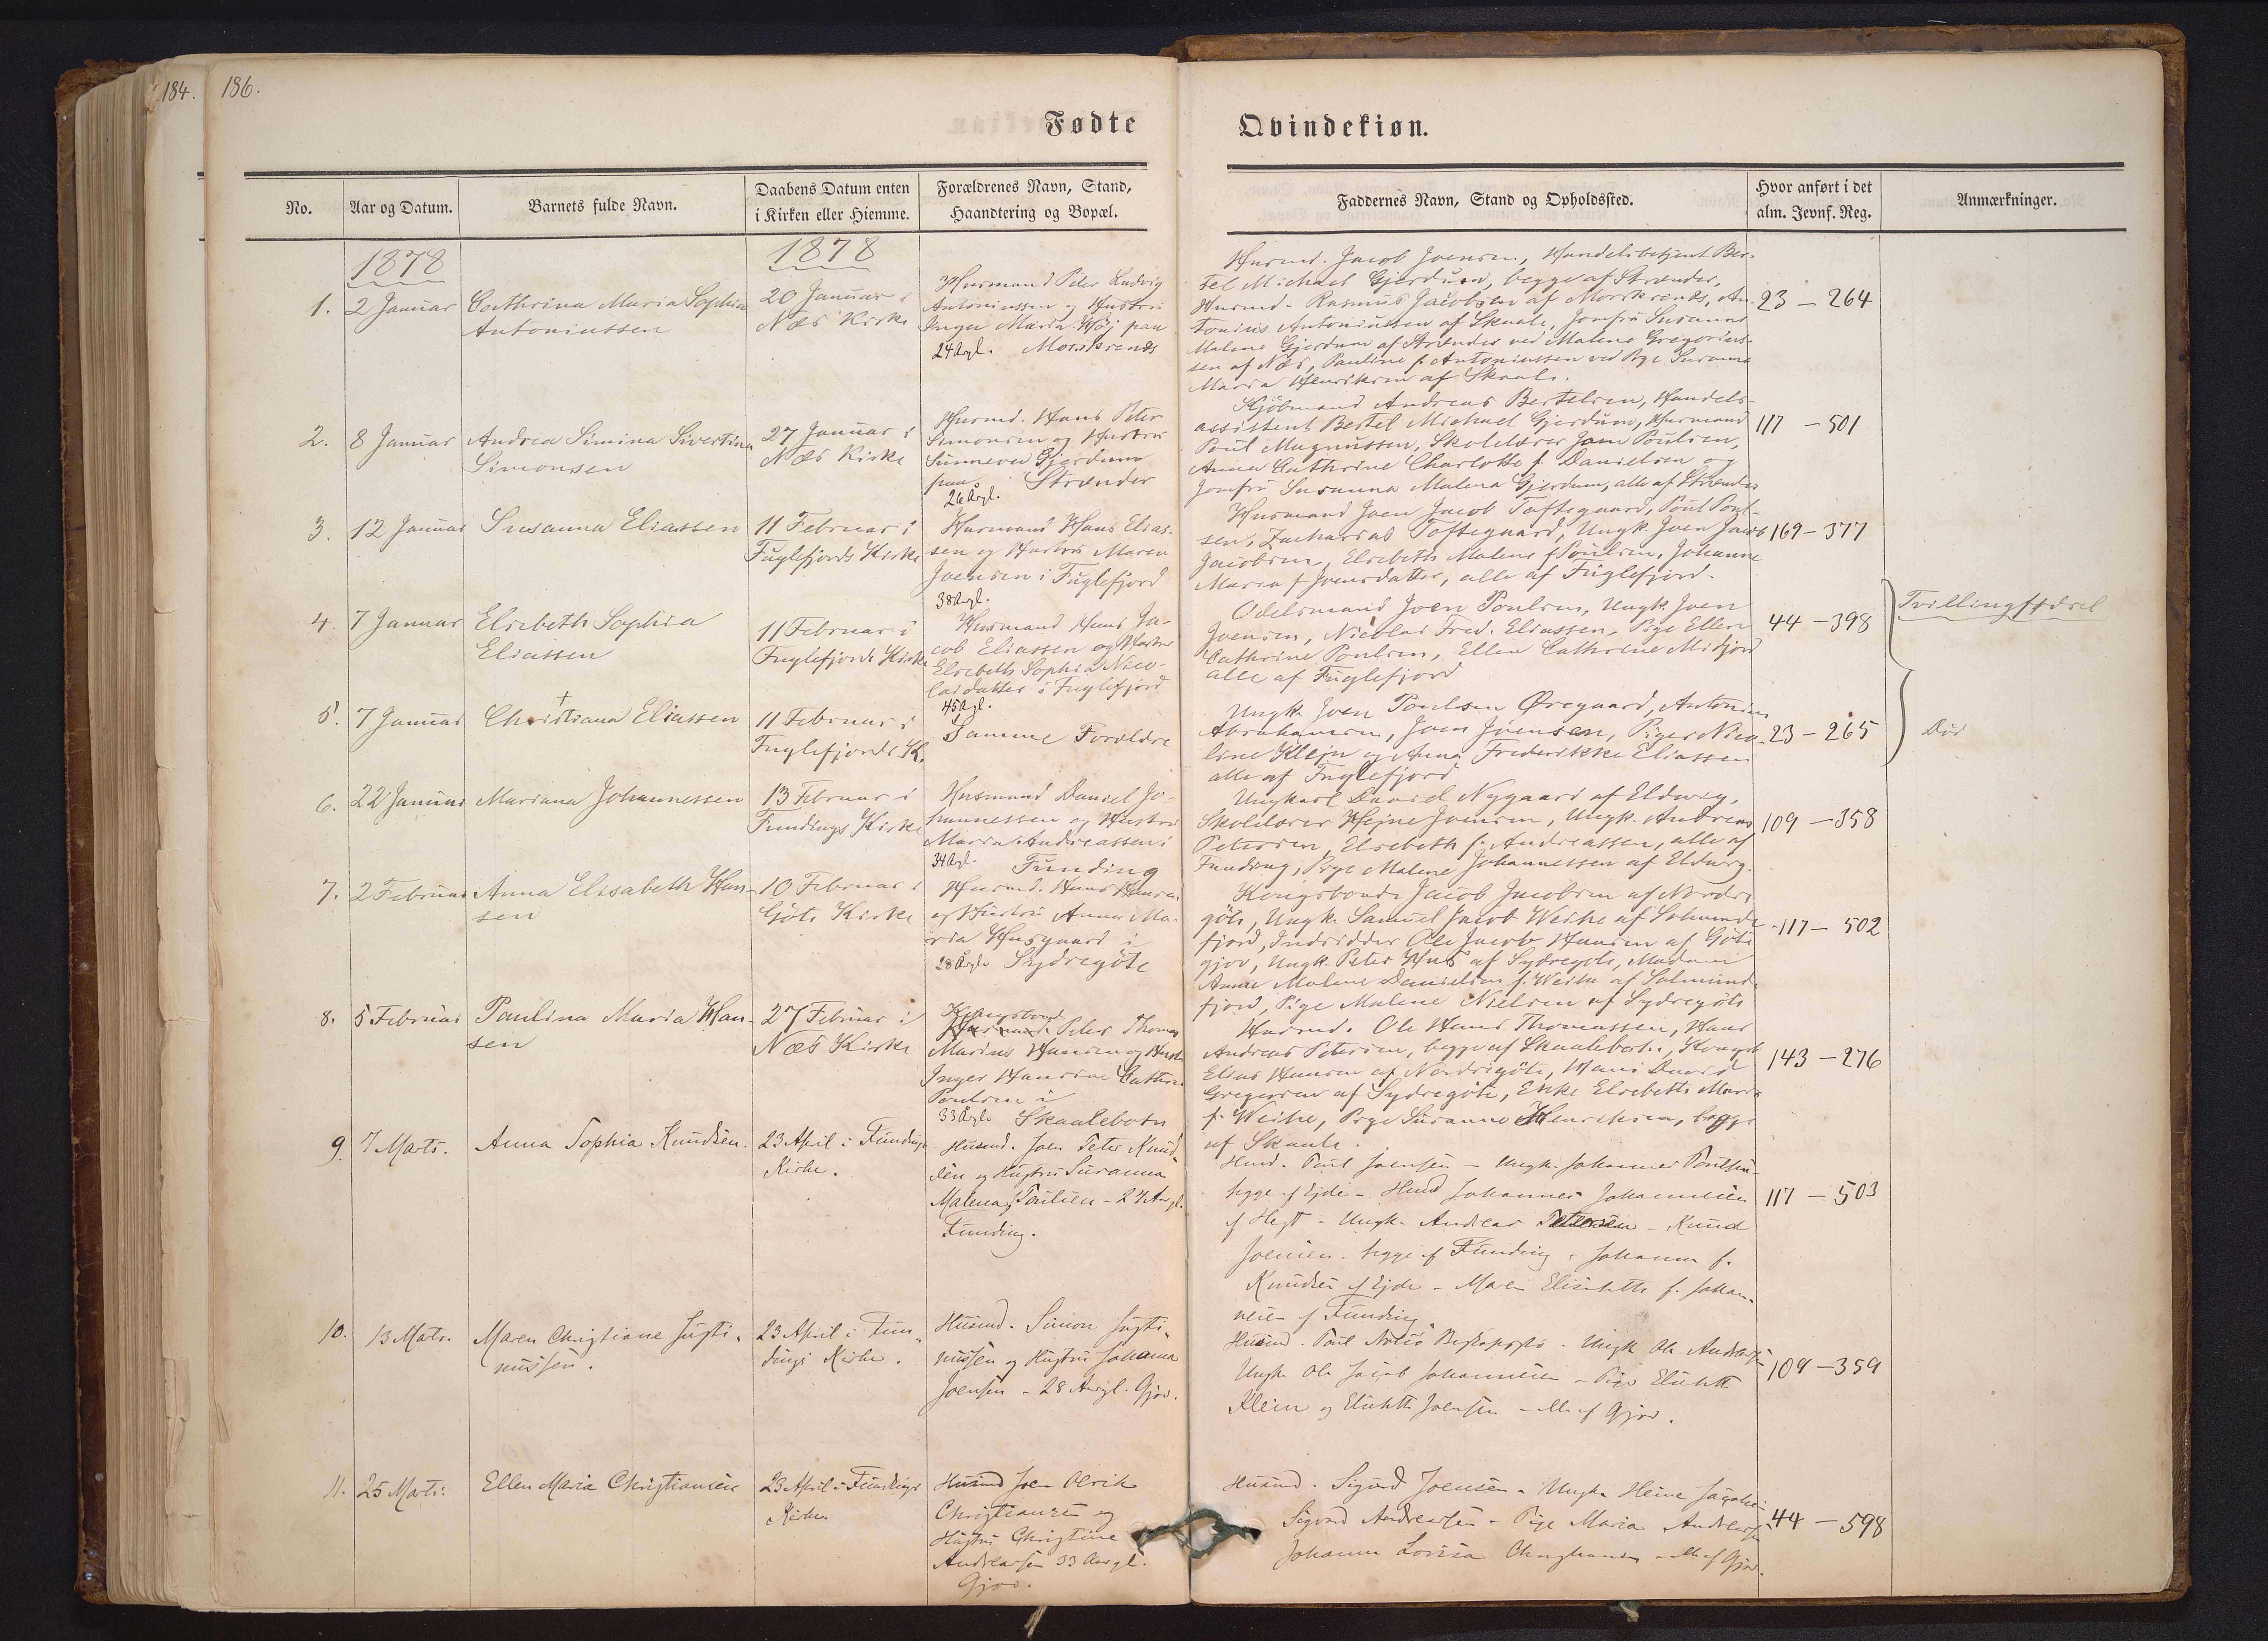 184.
186.
Fødte
Qvindekiøn.
No.
Aar og Datum.
Barnets fulde Navn.
Daabens Datum enten
i Kirken eller Hiemme.
Forældrenes Navn, Stand,
Haandtering og Bopæl.
Faddernes Navn, Stand og Opholdssted.
Hvor anført i det
alm. Jevnf. Reg.
Anmærkninger.
1878
1878
1.
2 Januar
Cathrina Maria Sophia
Antoniussen
20 Januar i
Næs Kirke
Husmand Peter Ludvig
Antoniussen og Hustru
Inger Maria Høj paa
24 Aargl. Morskrenes
Husmd. Jacob Joensen, Handelsbetjent Ber-
tel Michael Gjerdum, begge af Strænder,
Husmd. Rasmus Jacobsen af Morskrenes, An-
tonius Antoniussen af Skaale, Jomfru Susanna
Malene Gjerdum af Strænder ved Malene Gregorius-
sen af Næs, Pauline f. Antoniussen ved Pige Susanna
Maria Henriksen af Skaale.
23 - 264
2.
8 Januar
Andrea Simina Sivertina
Simonsen
27 Januar i
Næs Kirke
Husmd. Hans Peter
Simonsen og Hustru
Sunneva Gjerdum
paa Strænder
26 Årgl.
Kjöbmand Andreas Bertelsen, Handels-
assistent Bertel Michael Gjerdum, Husmand
Poul Magnussen, Skolelærer Joen Poulsen,
Anna Cathrine Charlotte f. Danielsen og
Jomfru Susanna Malena Gjerdum, alle af Strænder
117 - 501
3.
12 Januar
Susanna Eliassen
11 Februar i
Fuglefjords Kirke
Husmand Hans Elias-
sen og Hustru Maren
Joensen i Fuglefjord
38 Aargl.
Husmand Joen Jacob Toftegaard, Poul Poul-
sen, Zacharias Toftegaard, Ungk. Joen Jacob
Jacobsen, Elsebeth Malene f. Poulsen, Johanne
Maria f. Joensdatter, alle af Fuglefjord.
169 - 377
4.
7 Januar
Elsebeth Sophia
Eliassen
11 Februar i
Fuglefjords Kirke
Husmand Hans Ja-
cob Eliassen og Hustru
Elsebeth Sophia Nico-
laidatter i Fuglefjord
45 Agl.
Odelsmand Joen Poulsen, Ungk. Joen
Joensen, Nicolai Fred. Eliassen, Pige Ellen
Cathrine Poulsen, Ellen Cathrine Midjord
alle af Fuglefjord
44 - 398
Tvillingfødsel
5.
7 Januar
Christiana Eliassen
11 Februar i
Fuglefjords K.
Samme Forældre
Ungk. Joen Poulsen Øregaard, Antonius
Abrahamsen, Joen Joensen, Piger Nico-
line Klejn og Anna Frederikke Eliassen
alle af Fuglefjord
23 - 265
Död
6.
22 Januar
Mariana Johannessen
13 Februar i
Fundings Kirke
Husmand Daniel Jo-
hannessen og Hustru
Maria Andreassen i
34 Agl. Funding
Ungkarl David Nygaard af Eldevig,
Skolelærer Hejne Joensen, Ungk. Andreas
Petersen, Elsebeth f. Andreassen, alle af
Funding, Pige Malene Johannessen af Eldevig.
109 - 358
7.
2 Februar
Anna Elisabeth Han-
sen
10 Februar i
Göte Kirke
Husmd. Hans Hansen
og Hustru Anna Ma-
ria Husgaard i
28 Årgl. Sydregöte
Kongsbonde Jacob Jacobsen af Nordre
göte, Ungk. Samuel Jacob Weihe af Solmunde
fjord, Indsidder Ole Jacob Hansen af Göte
gjov, Ungk. Peter Hus af Sydregöte, Madame
Anne Malene Danielsen f. Weihe af Solmunde
fjord, Pige Malene Nielsen af Sydregöte
117 - 502
8.
5 Februar
Paulina Maria Han-
sen
27 Februar i
Næs Kirke
Kongsbond
Peter Thomas
Marius Hansen og Hust.
Inger Hansine Cathr.
Poulsen i
33 Årgl. Skaalebotn
Husmd. Ole Hans Thomassen, Hans
Andreas Petersen, begge af Skaalebotn, Kongsb.
Elias Hansen af Nordregöte, Hans David
Gregersen af Sydregöte, Enke Elsebeth Maria
f. Weihe, Pige Susanne Henriksen, begge
af Skaale.
143 - 276
9.
7 Marts.
Anna Sophia Knudsen.
23 April i Fundings
Kirke.
Husmd. Joen Peter Knud-
sen og Hustru Susanna
Malena f. Poulsen - 27 Aargl.
Funding.
Husmd. Poul Joensen - Ungk. Johannes Poulsen
begge af Ejde - Husmd Johannes Johannesen
Ungk. Andreas Petersen - Knud
Joensen - begge af Funding - Johanna f.
Knudsen af Ejde - Maren Elisabeth f. Johan-
nesen af Funding.
117 - 503
10.
13 Marts.
Maren Christiane Justi-
nussen.
23 April i Fun-
dings Kirke.
Husmd. Simon Justi-
nussen og Hustru Johanna
Joensen - 28 Aargl. Gjov.
Husmd. Poul
Ungk. Ole Andreassen
Ungk. Ole Jacob Johannesen - Pige Elsebeth
Klein og Elsebeth Joensen - alle af Gjov.
109 - 359
11.
25 Marts.
Ellen Maria Christiansen
23 April i Fundings
Kirke.
Husmd Joen Olrik
Christiansen og
Hustru Christine
Andreassen 33 Aargl.
Gjov.
Husmd. Sigurd Joensen - Ungk. Heine Jacobsen
Sigurd Andreassen - Pige Maria Andreassen
Johanna Lovisa Christiansen - alle af Gjov.
44 - 598